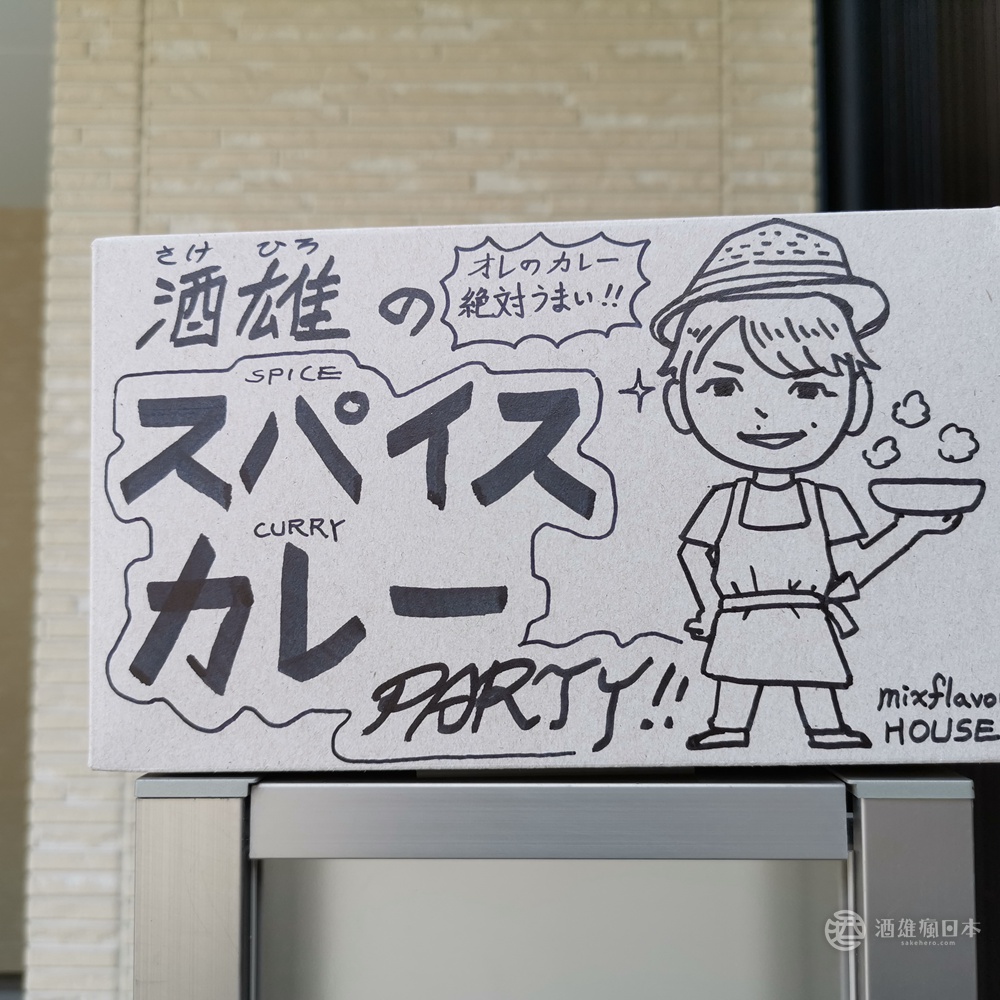 さけ ひろ
酒雄の
オレのカレー
絶対うまい!!
SPICE
スパイス
CURRY
カレー
PARTY!!
mixflavo
HOUSE
酒雄瘋日本
sakehero.com